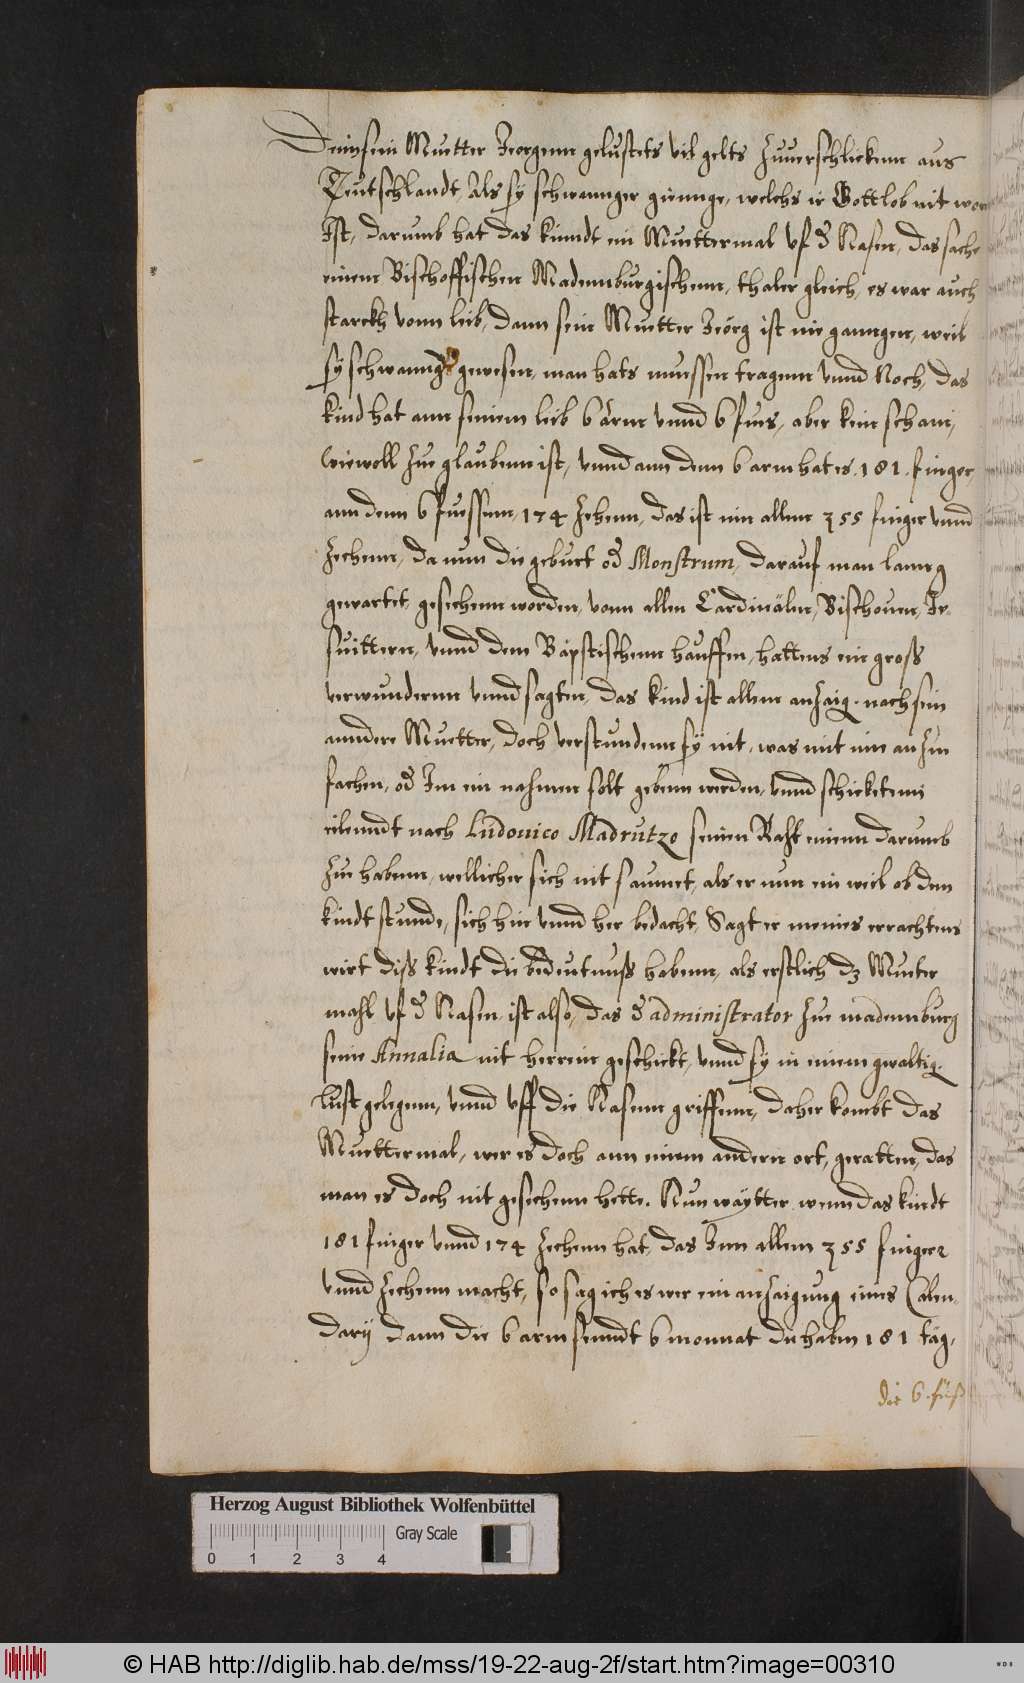 Dennsein Muetter Jeorgenn gelustets vil gelts zuuerschlickenn aus
Teutschlandt, Als sÿ schwannger gienge, welchs ir Gottlob nit wor
Ist, darumb hat das kinndt ein Muettermal vf d Nasen, das sache
einem Bischoffischen Madennburgischenn, thaler gleich, es war auch
starckh vonn leib, dann sein Muetter Jeörg ist nie ganngen, weil
sÿ schwannger gewesen, man hats muessen tragenn vnnd Noch, das
kind hat ann seinem leib 6 ärm vnnd 6 fues, aber kein scham,
Wiewoll zue glaubenn ist, vnnd ann denn 6 arm hat es .181. finger
ann denn 6 fuessenn, 174 Zehenn, das ist inn allem 355 finger vnnd
Zechenn, da nun die geburt od Monstrum, darauf man lanng
gewartet, gesechenn worden, vonn allen Cardinäln, Bischouen, Je-
suittern, vnnd dem Bäpstischenn hauffen, hattens ein gross
verwundernn vnnd sagten, das kind ist allem anzaig. nach sein
anndere Muetter, doch verstundenn sÿ nit, was mit im anzu
fachen, od Im ein nahmen solt gebenn werden, vnnd schicketenn
eilenndt nach Ludouico Madrutzo seinen Raht einenn darumb
zue habenn, wellicher sich nit saumet, als er nun ein weil ob dem
kindt stunde, sich hin vnnd her bedacht, Sagt er meines errachtens
wirt diss kindt die bedeutnuss habenn, als erstlich dz Mueter
mahl vf d Nasen ist also, das d administrator zue madennburg
seine Annalia nit herrein geschickt, vnnd sÿ in einem gwaltig.
Lust gelegenn, vnnd vff die Nasenn griffenn, daher kombt das
Muettermal, wer es doch ann einem andern ort, geratten, das
man es doch nit gesechenn hette. Nun waÿtter wenn das kindt
181 finger vnnd 174 Zechenn hat, das Inn allem 355 finger
vnnd Zechenn macht, so sag ich es wer ein anzaigung eines Calen-
darÿ dann die 6 arm seindt 6 monnat die habn 181 täg,
die 6. füß
Herzog August Bibliothek Wolfenbüttel
Gray Scale
0 1 2 3 4
© HAB http://diglib.hab.de/mss/19-22-aug-2f/start.htm?image=00310